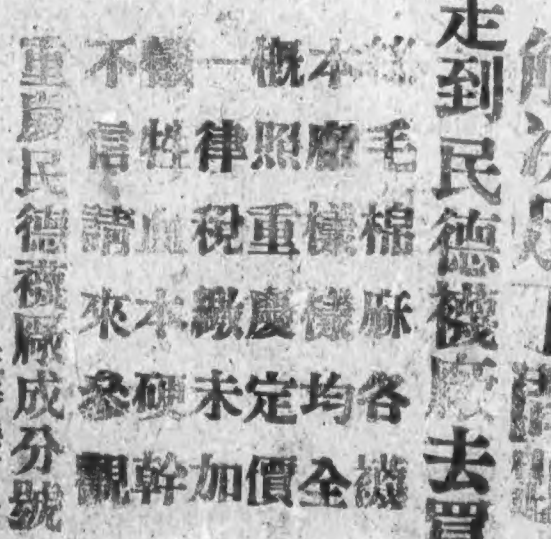 走到民德襪厰去買
絲毛棉麻各襪
本廠樣樣均全
概照重慶定價
一律現繳未加
犧牲血本硬幹
不信請來參觀
重慶民德襪厰成分號